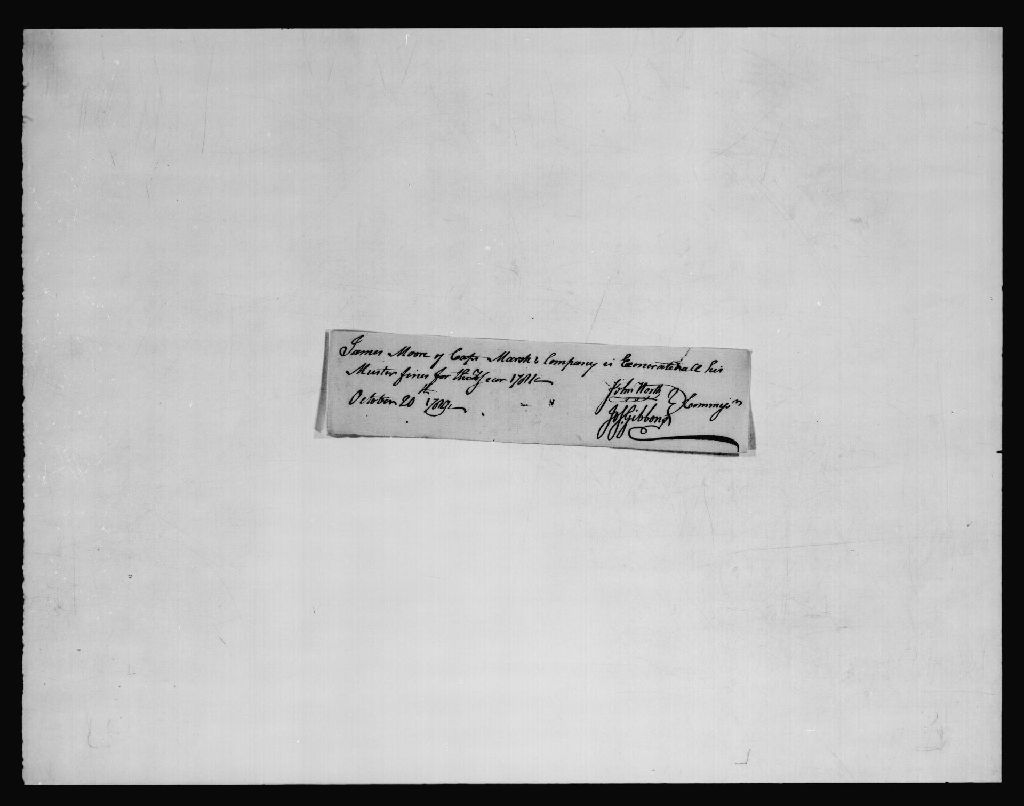 James Moore of Capt Marsh's Company is Exonerated all his
Muster fines for the Year 1781
October 20th 1789
John Worth
Jos. Gibbons
Commiss